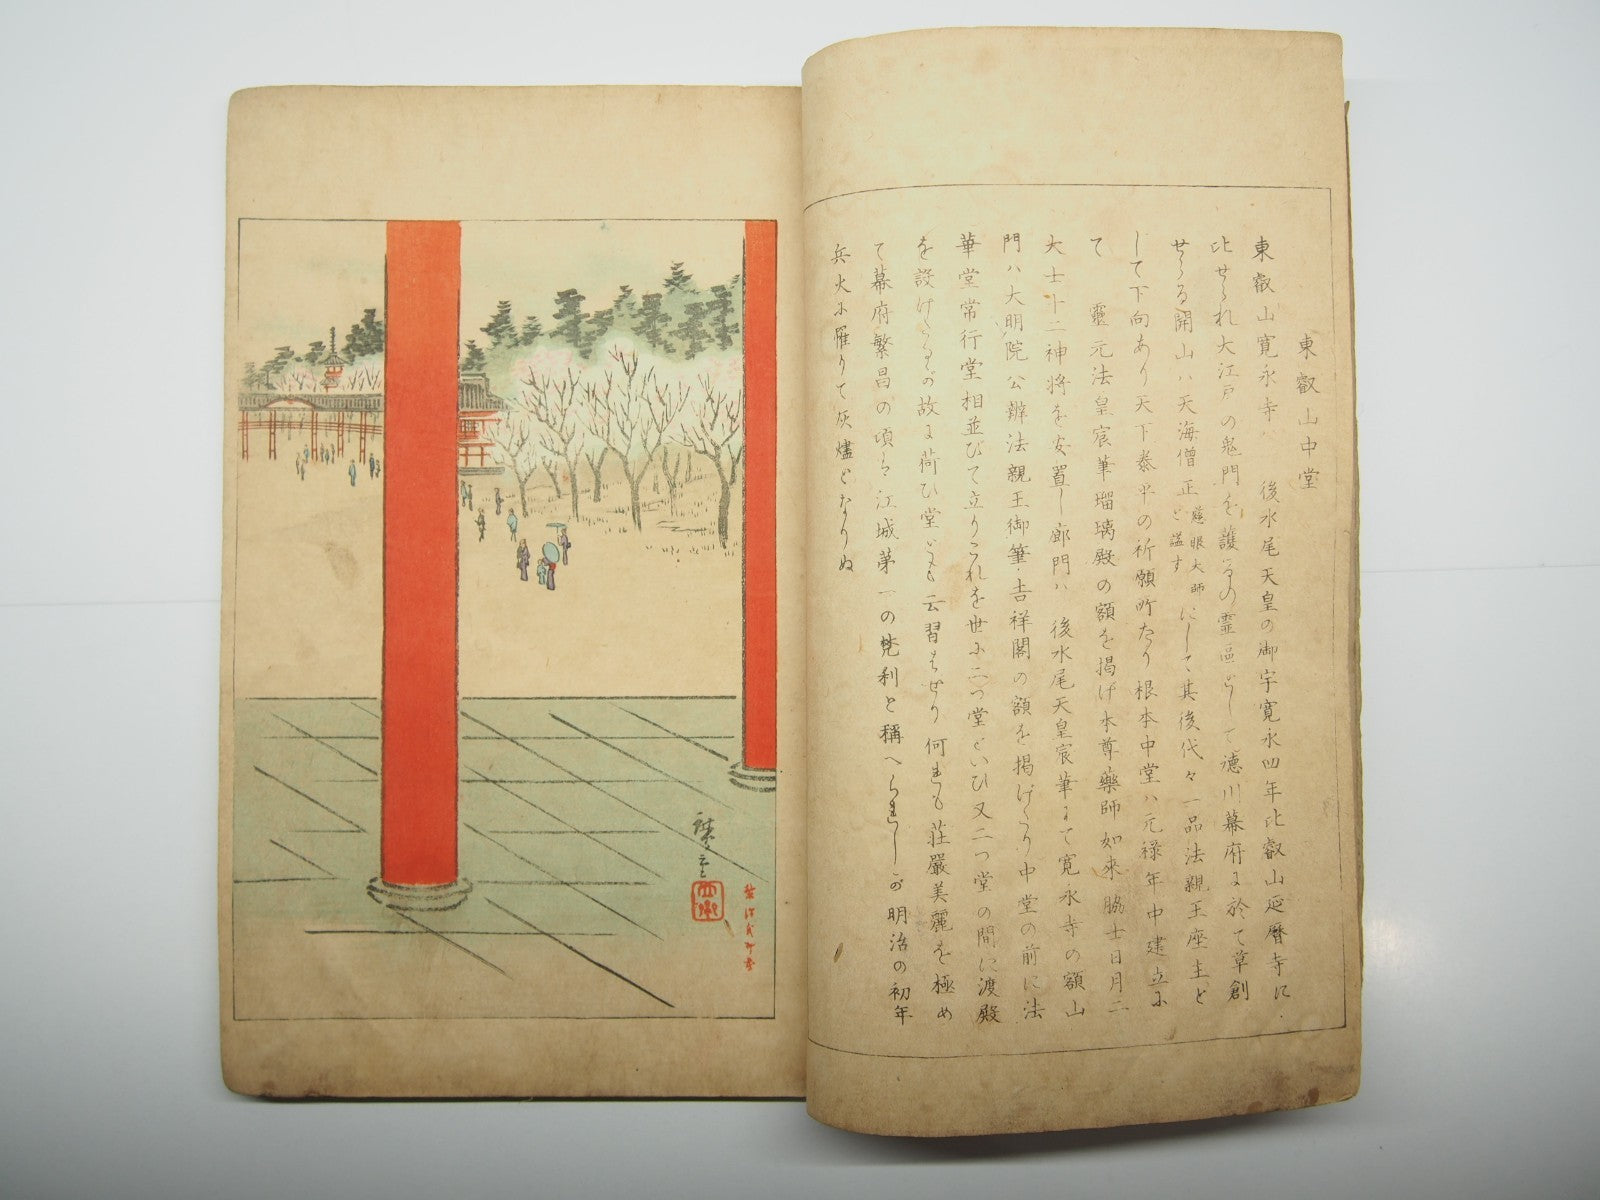 東叡山中堂
東叡山寛永寺ハ 後水尾天皇の御宇寛永四年比叡山延暦寺に
比せられ大江戸の鬼門を護るの霊區として徳川幕府に於て草創
せらる開山ハ天海僧正慈眼大師と諡すにして其後代々一品法親王座主と
して下向あり天下泰平の祈願所たり根本中堂ハ元禄年中建立に
て 靈元法皇宸筆瑠璃殿の額を掲げ本尊藥師如来脇士日月二
大士十二神将を安置し廊門ハ 後水尾天皇宸筆にて寛永寺の額山
門ハ大明院公辨法親王御筆吉祥閣の額を掲げたり中堂の前に法
華堂常行堂相並びて立りこれを世に二つ堂といひ又二つ堂の間に渡殿
を設けたるの故に荷ひ堂とも云習はせり何れも荘嚴美麗を極め
て幕府繁昌の頃は江城第一の梵刹と稱へられしが明治の初年
兵火に罹りて灰燼となりぬ
廣重